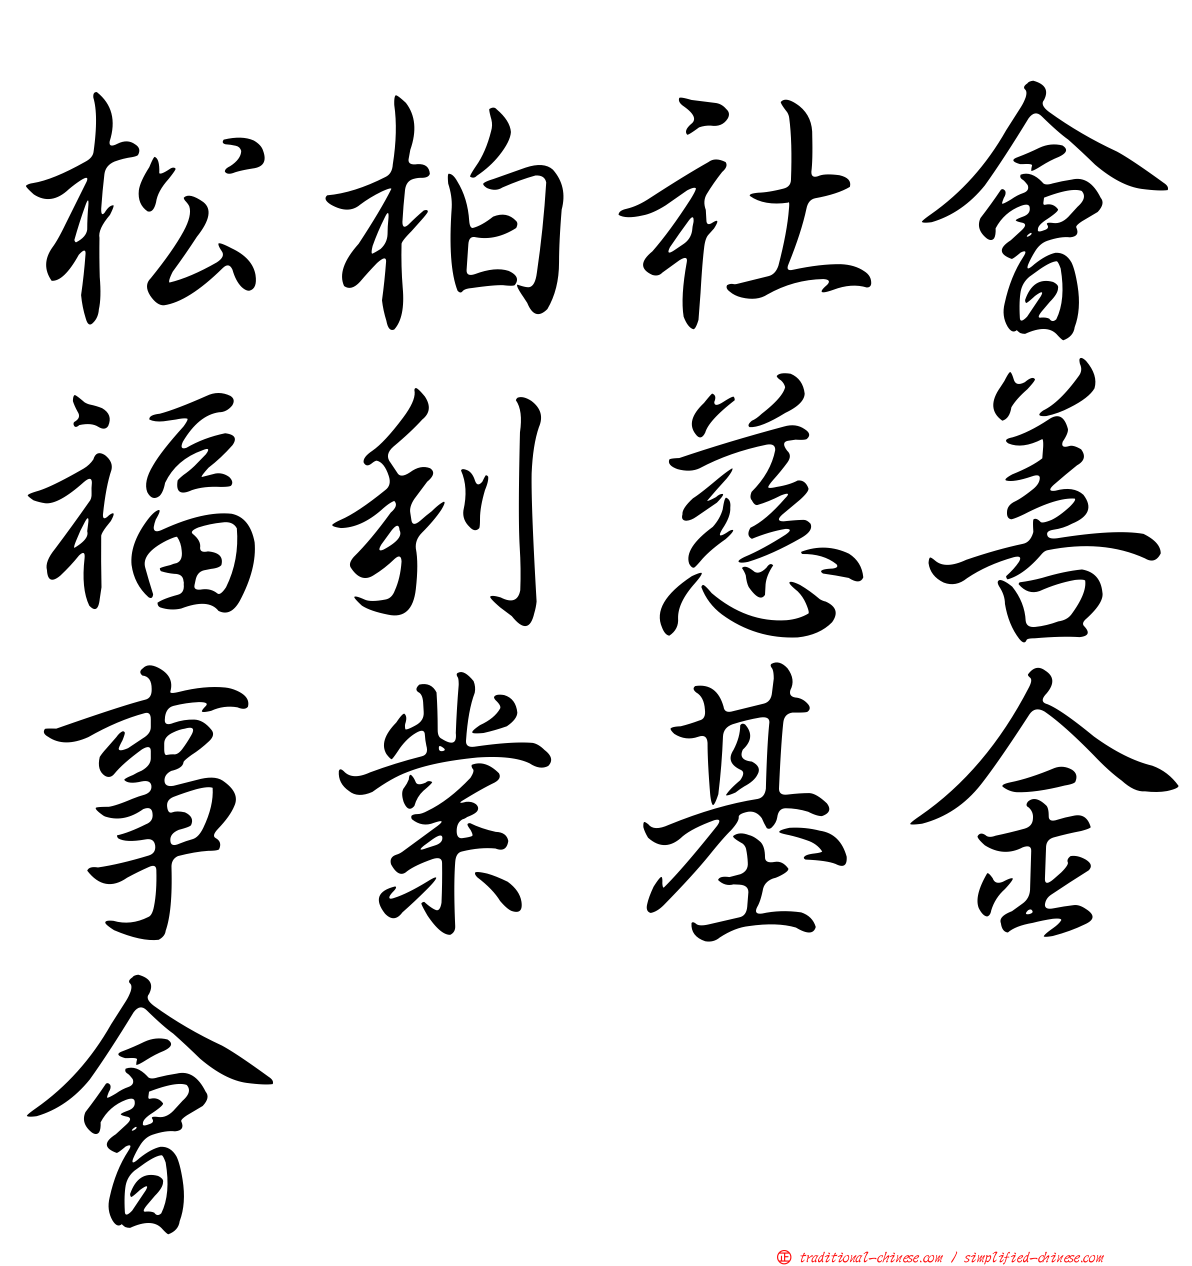 松柏社會
福利慈善
事業基金
會
正 traditional-chinese.com / simplified-chinese.com